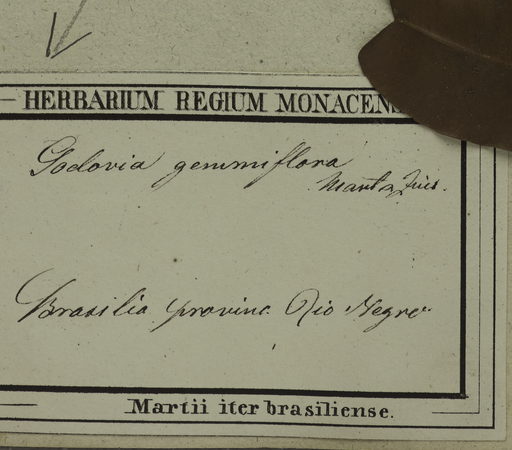 HERBARIUM REGIUM MONACEN
Godovia gemmiflora
Mart & Zucc.
Brasilia provinc. Rio Negro
Martii iter brasiliense.